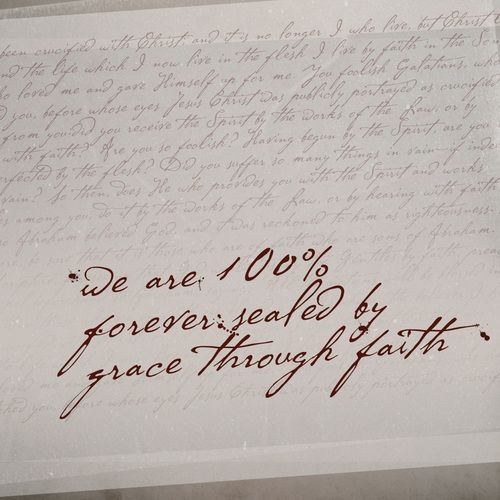 been crucified with Christ; and it is no longer I who live, but Christ
and the life which I now live in the flesh I live by faith in the Son
who loved me and gave Himself up for me. You foolish Galatians, who
you, before whose eyes Jesus Christ was publicly portrayed as crucified
from you: did you receive the Spirit by the works of the Law, or by
with faith? Are you so foolish? Having begun by the Spirit, are you
perfected by the flesh? Did you suffer so many things in vain- if indeed
vain? So then, does He who provides you with the Spirit and works
among you, do it by the works of the Law, or by hearing with faith
Abraham believed God, and it was reckoned to him as righteousness.
sure that it is those who are of faith who are sons of Abraham.
by faith,
we are 100%
forever sealed by
grace through faith
loved me and
you, before whose eyes Jesus Christ was publicly portrayed as crucified